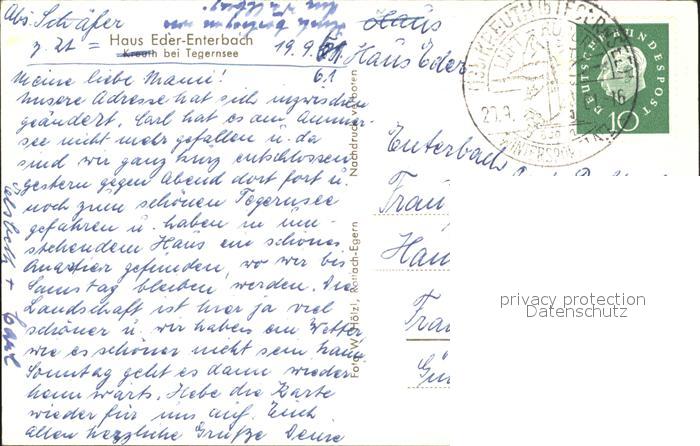 Abs. Schäfer
z. Zt. =
Haus Eder-Enterbach
Kreuth bei Tegernsee
19.9.61
61
Meine liebe Mami!
Unsere Adresse hat sich inzwischen
geändert. Carl hat es am Ammer-
see nicht mehr gefallen u. da
sind wir ganz kurz entschlossen
gestern gegen Abend dort fort u.
noch zum schönen Tegernsee
gefahren u. haben in um-
stehendem Haus ein schönes
Quartier gefunden, wo wir bis
Samstag bleiben werden. Die
Landschaft ist hier ja viel
schöner u. wir haben ein Wetter
wie es schöner nicht sein kann.
Sonntag geht es dann wieder
heimwärts. Hebe die Karte
wieder für uns auf. Euch
allen herzliche Grüße Deine
Elsbeth + Carl
Nachdruck verboten
Foto W. Hölzl, Rottach-Egern
Haus
Haus Eder
Enterbach
Frau
Han
Frau
DEUTSCHE BUNDESPOST
10
KREUTH
TEGERNSEE
LUFTKURORT
20.9.
WINTERSPORT
privacy protection
Datenschutz